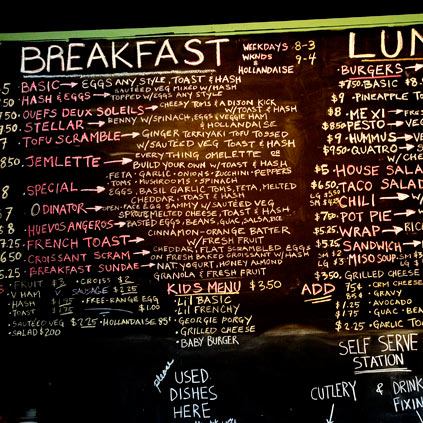 BREAKFAST
WEEKDAYS 8-3
WKNDS 9-4
HOLLANDAISE
BASIC → EGGS ANY STYLE, TOAST & HASH
HASH & EGGS → SAUTÉED VEG MIXED W/HASH
TOPPED W/EGGS ANY STYLE
OUEFS DEUX SOLEILS → CHEESY TOMS & ADISON KICK
W/TOAST & HASH
STELLAR → BENNY W/SPINACH, EGGS & VEGGIE HAM
& HOLLANDAISE
TOFU SCRAMBLE → GINGER TERRIYAKI TOFU TOSSED
W/SAUTÉED VEG TOAST & HASH
JEMLETTE → EVERYTHING OMELETTE OR
BUILD YOUR OWN W/TOAST & HASH
FETA · GARLIC · ONIONS · ZUCCHINI · PEPPERS
TOMS · MUSHROOMS · SPINACH
SPECIAL → EGGS, BASIL GARLIC TOMS, FETA, MELTED
CHEDDAR, TOAST & HASH
ODINATOR → OPEN-FACE EGG SAMMY W/SAUTÉED VEG
SPROUTS, MELTED CHEESE, TOAST & HASH
HUEVOS RANGEROS → BASTED EGGS, BEANS, GUAC, SALSA
FRENCH TOAST → CINNAMON-ORANGE BATTER
W/FRESH FRUIT
CROISSANT SCRAM → CHEDDAR, FLAT SCRAMBLED EGGS
ON FRESH BAKED CROISSANT W/HASH
BREAKFAST SUNDAE → NAT. YOGURT, HONEY, ALMOND
GRANOLA & FRESH FRUIT
FRUIT $3 · CROISS $2
V HAM SAUSAGE $2.25
HASH $1.75 · FREE-RANGE EGG
TOAST $1.75 $1.00
SAUTÉED VEG $2.25 · HOLLANDAISE 85¢
SALAD $2.00
KIDS MENU $3.50
LIL' BASIC
LIL' FRENCHY
GEORGIE PORGY
GRILLED CHEESE
BABY BURGER
LUN
BURGERS →
$7.50 BASIC $8.
$9 · PINEAPPLE TO
$8 · MEXI
$8.50 PESTO → VEG
$9 · HUMMUS → VE
$9.50 QUATRO → 
W/CHE
$5. HOUSE SALAD
$6.50 TACO SALAD
CHILI → W/
$7.50 POT PIE →
$5.25 WRAP → RIC
$5.25 SANDWICH →
MISO SOUP
$3.50 GRILLED CHEESE
ADD 75¢ · CRM CHEESE
85¢ · GRAVY
$1.25 · AVOCADO
$1.75 · GUAC · BEA
$2.25 · GARLIC TO
SELF SERVE
STATION
CUTLERY & DRINK
FIXIN
please
USED
DISHES
HERE